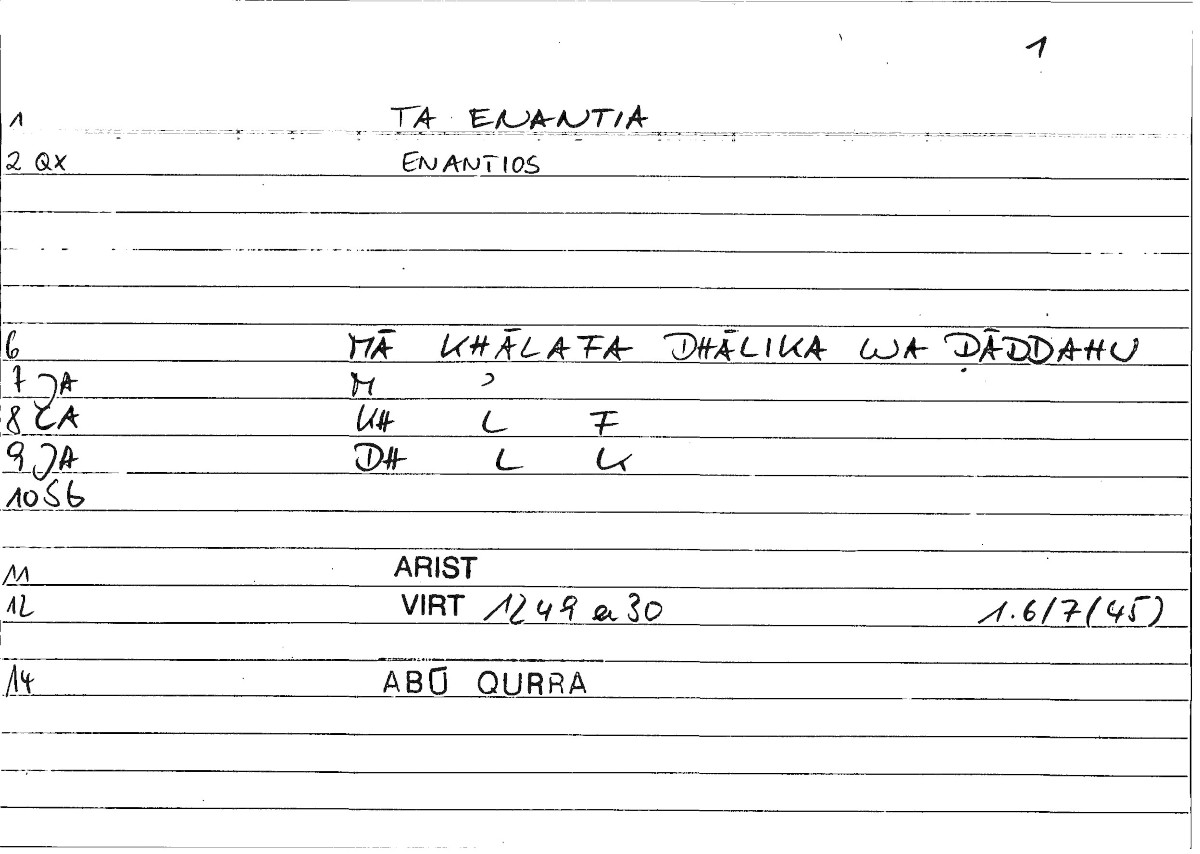 1
1 TA ENANTIA
2 QX ENANTIOS
6 MĀ KHĀLAFA DHĀLIKA WA ḌĀDDAHU
7 JA M ʾ
8 CA KH L F
9 JA DH L K
10 SB
11 ARIST
12 VIRT 1249 a 30 1.6/7(45)
14 ABŪ QURRA